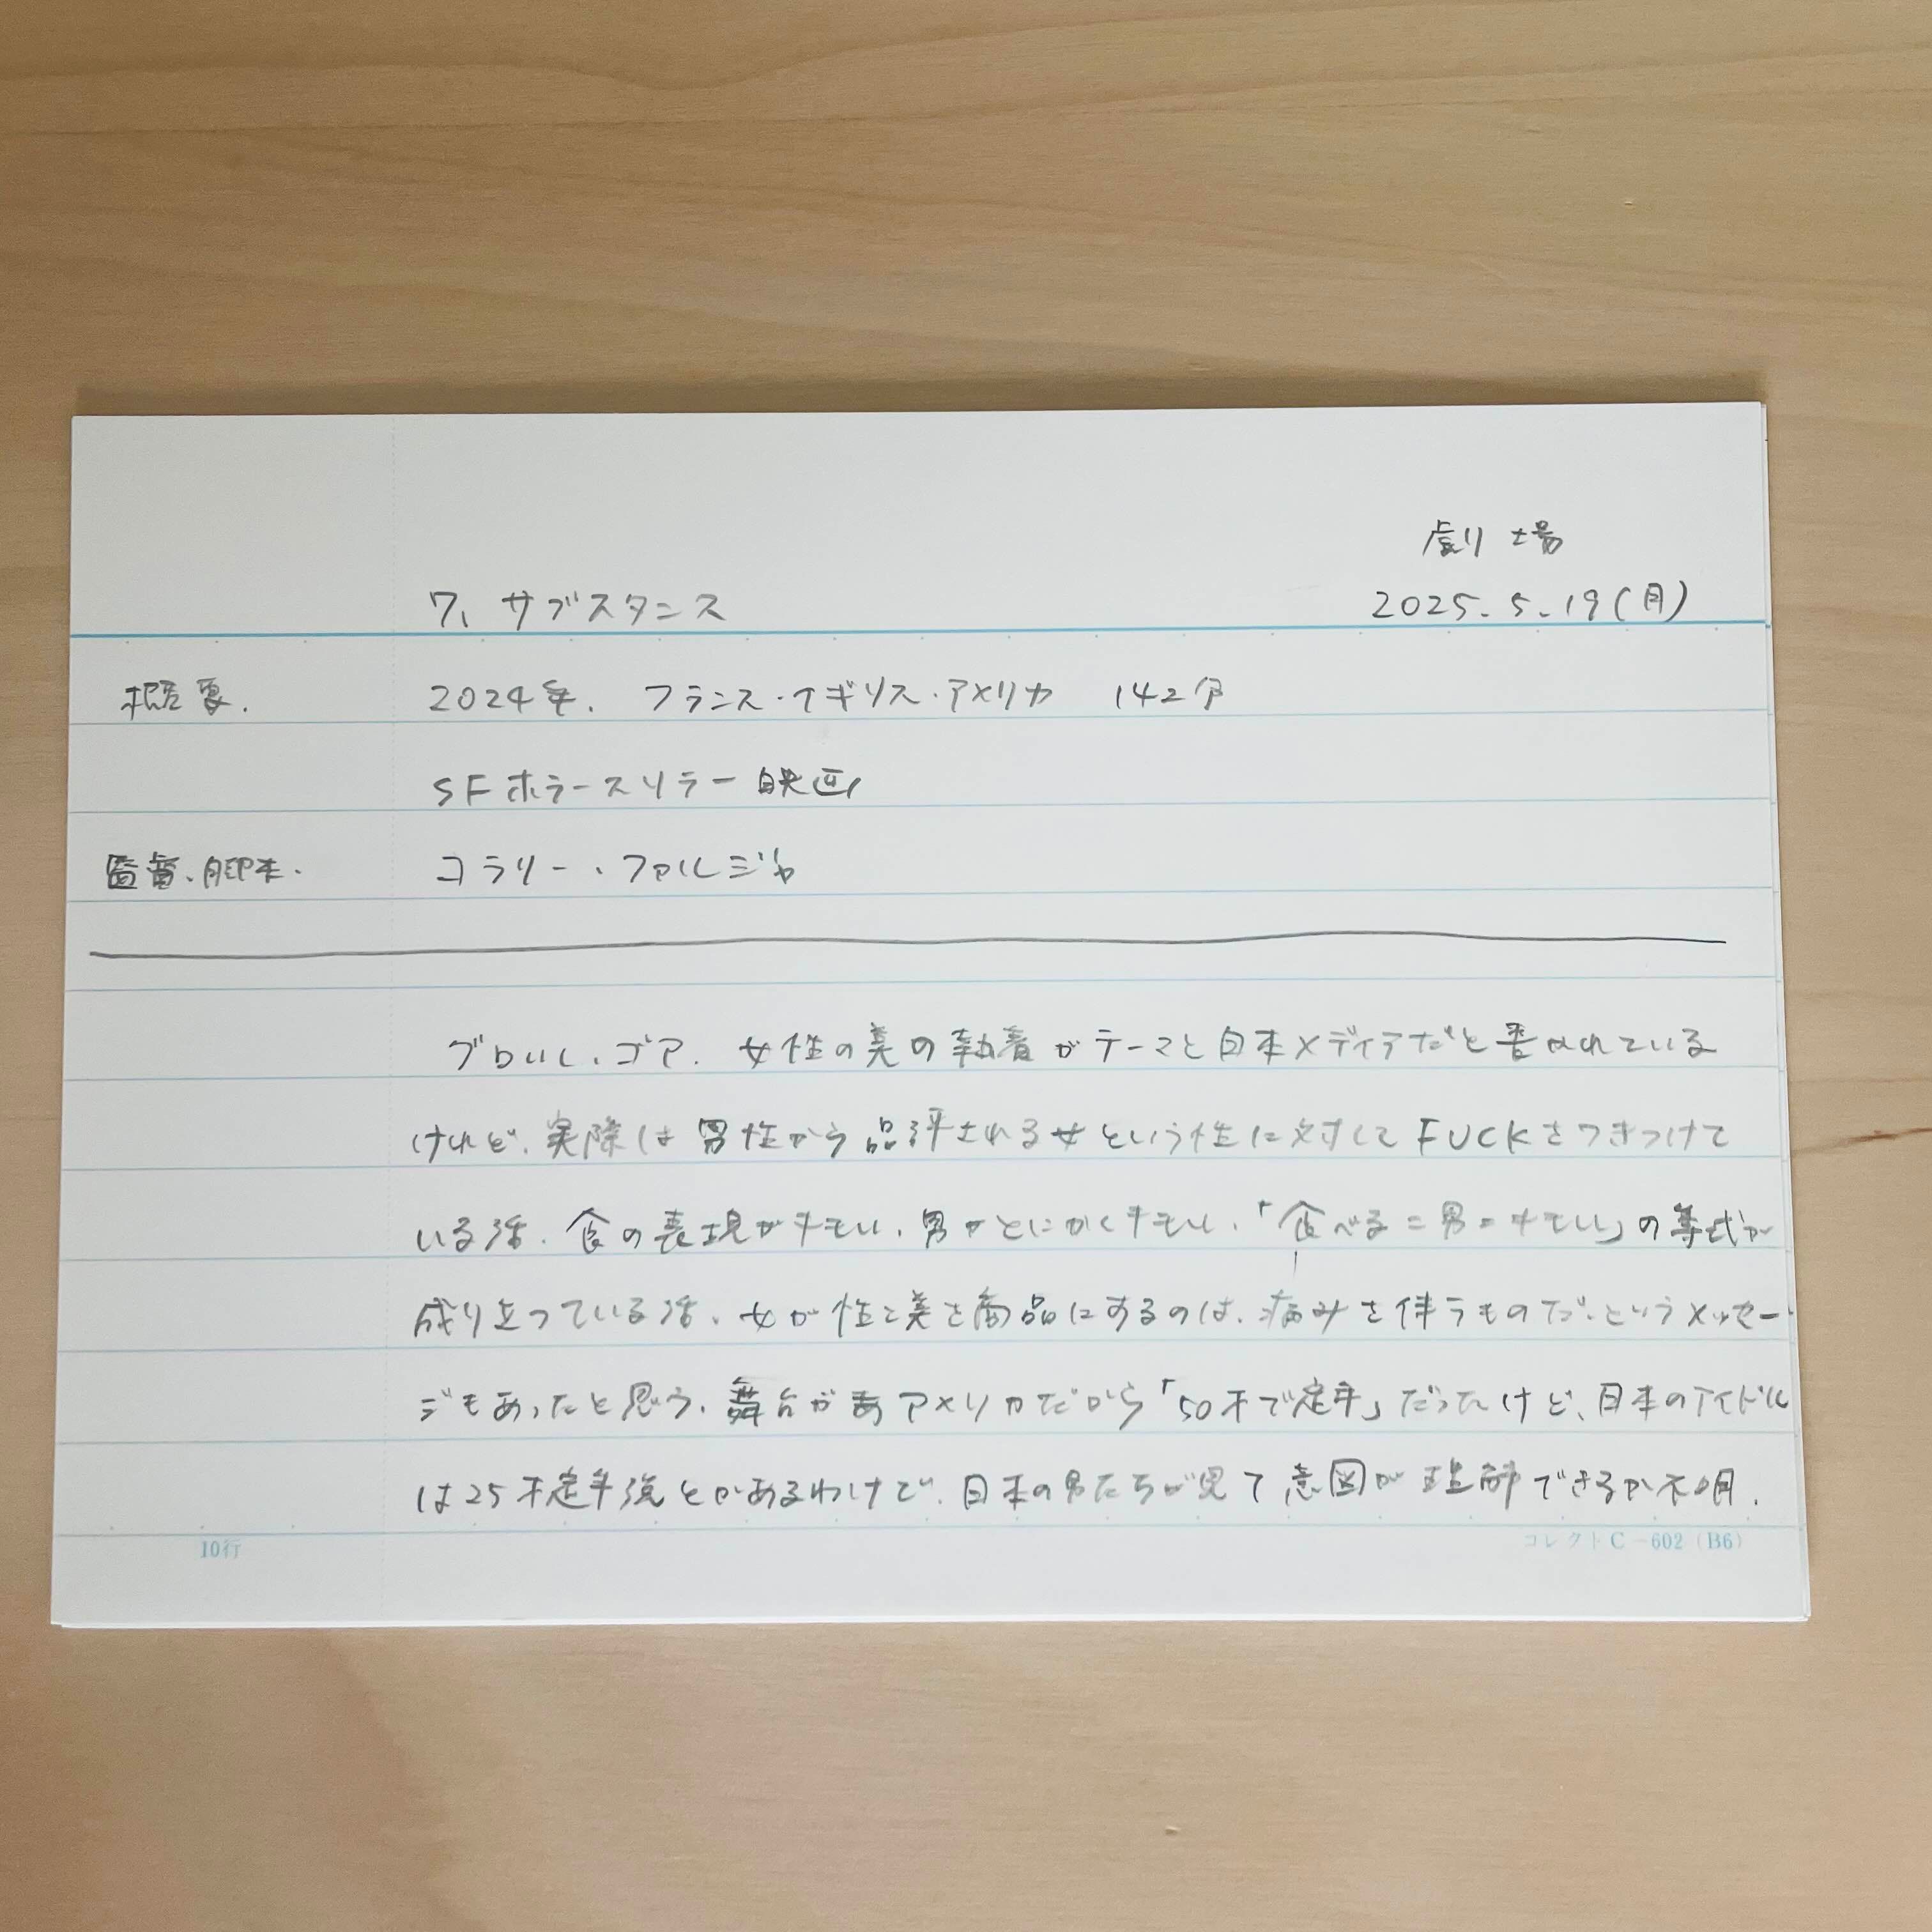 劇場
7、サブスタンス 2025.5.19(月)
概要. 2024年. フランス・イギリス・アメリカ 142分
SFホラースリラー映画
監督、脚本. コラリー・ファルジャ
グロいし、ゴア. 女性の美の執着がテーマと日本メディアだと書かれている
けれど、実際は男性から品評される女という性に対してFUCKをつきつけて
いる話. 食の表現がキモい. 男がとにかくキモい.「食べる=男=キモい」の等式が
成り立っている話. 女が性と美を商品にするのは、病みを伴うものだ、というメッセー
ジもあったと思う. 舞台がアメリカだから「50才で定年」だったけど、日本のアイドル
は25才定年説とかあるわけで、日本の男たちが見て意図が理解できるか不明.
10行 コレクト C-602 (B6)